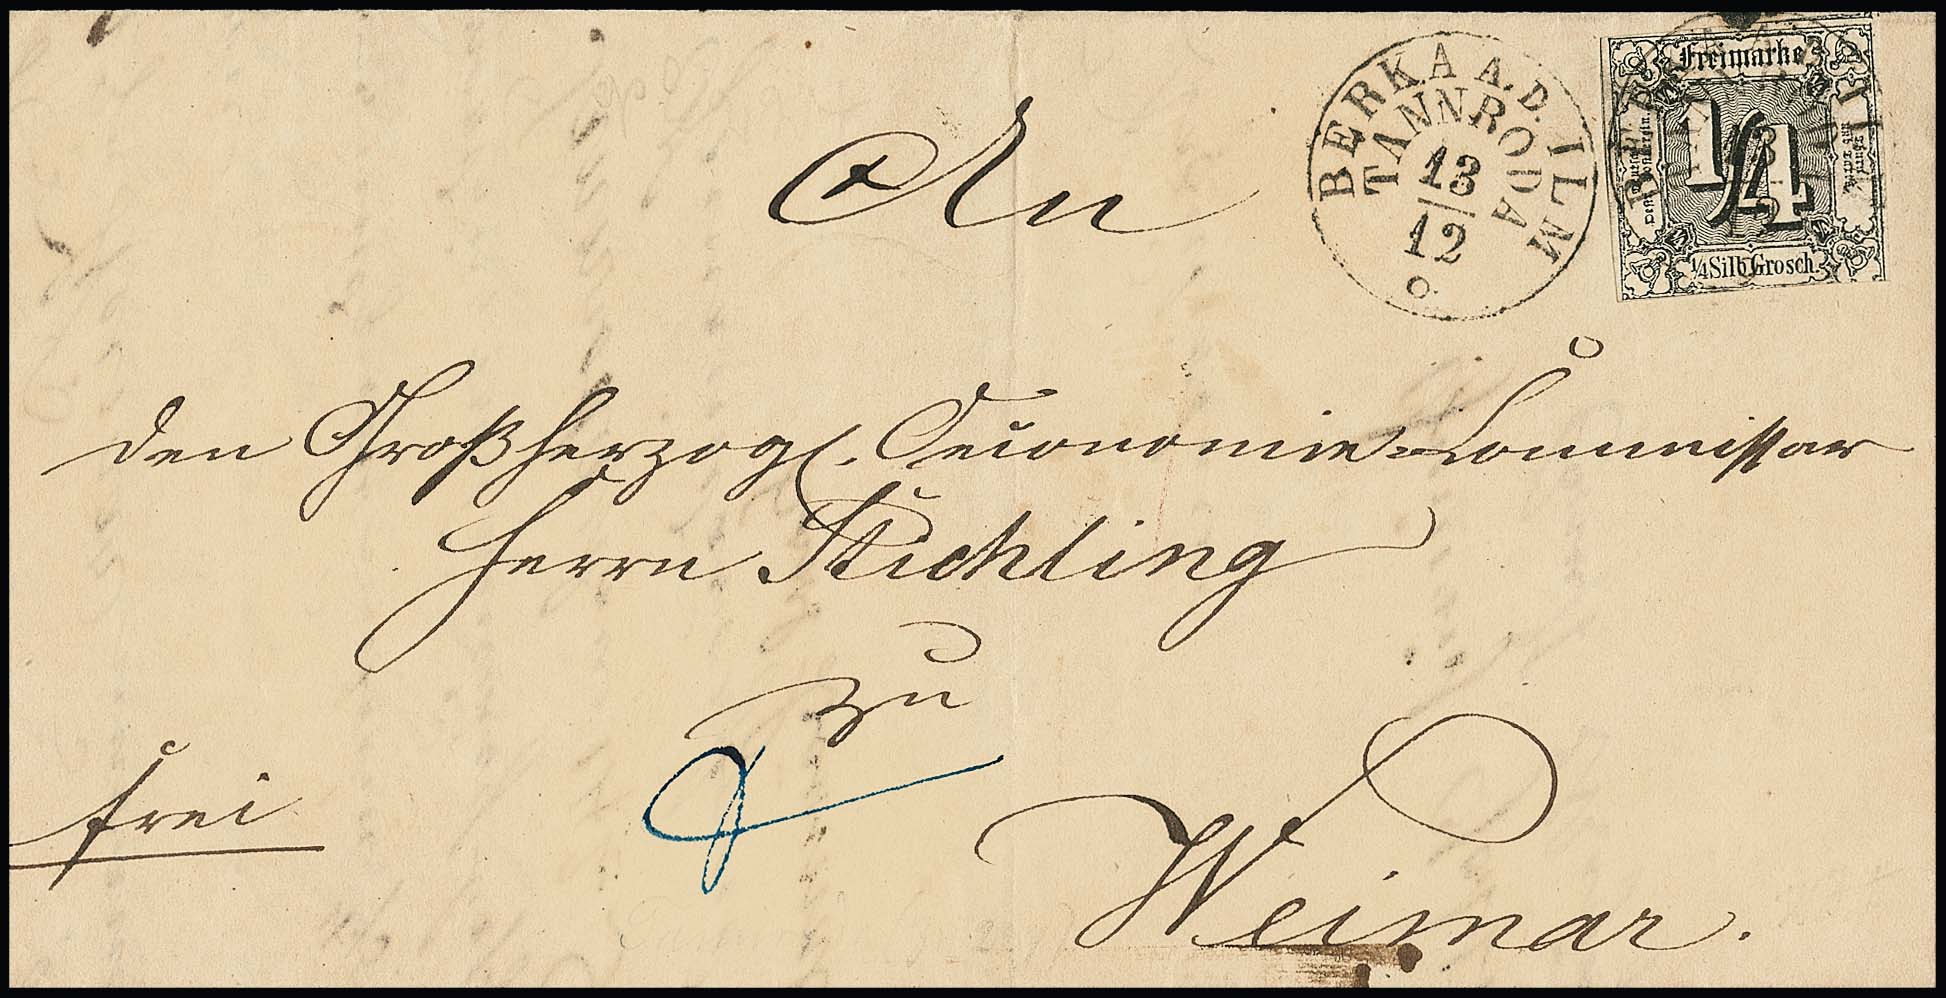 An
BERKA A.D. ILM
TANNRODA
13
12
Freimarke
1/4
1/4 Silb. Grosch.
den Großherzogl. Oeconomie-Commissar
Herrn Stichling
zu
Weimar.
frei